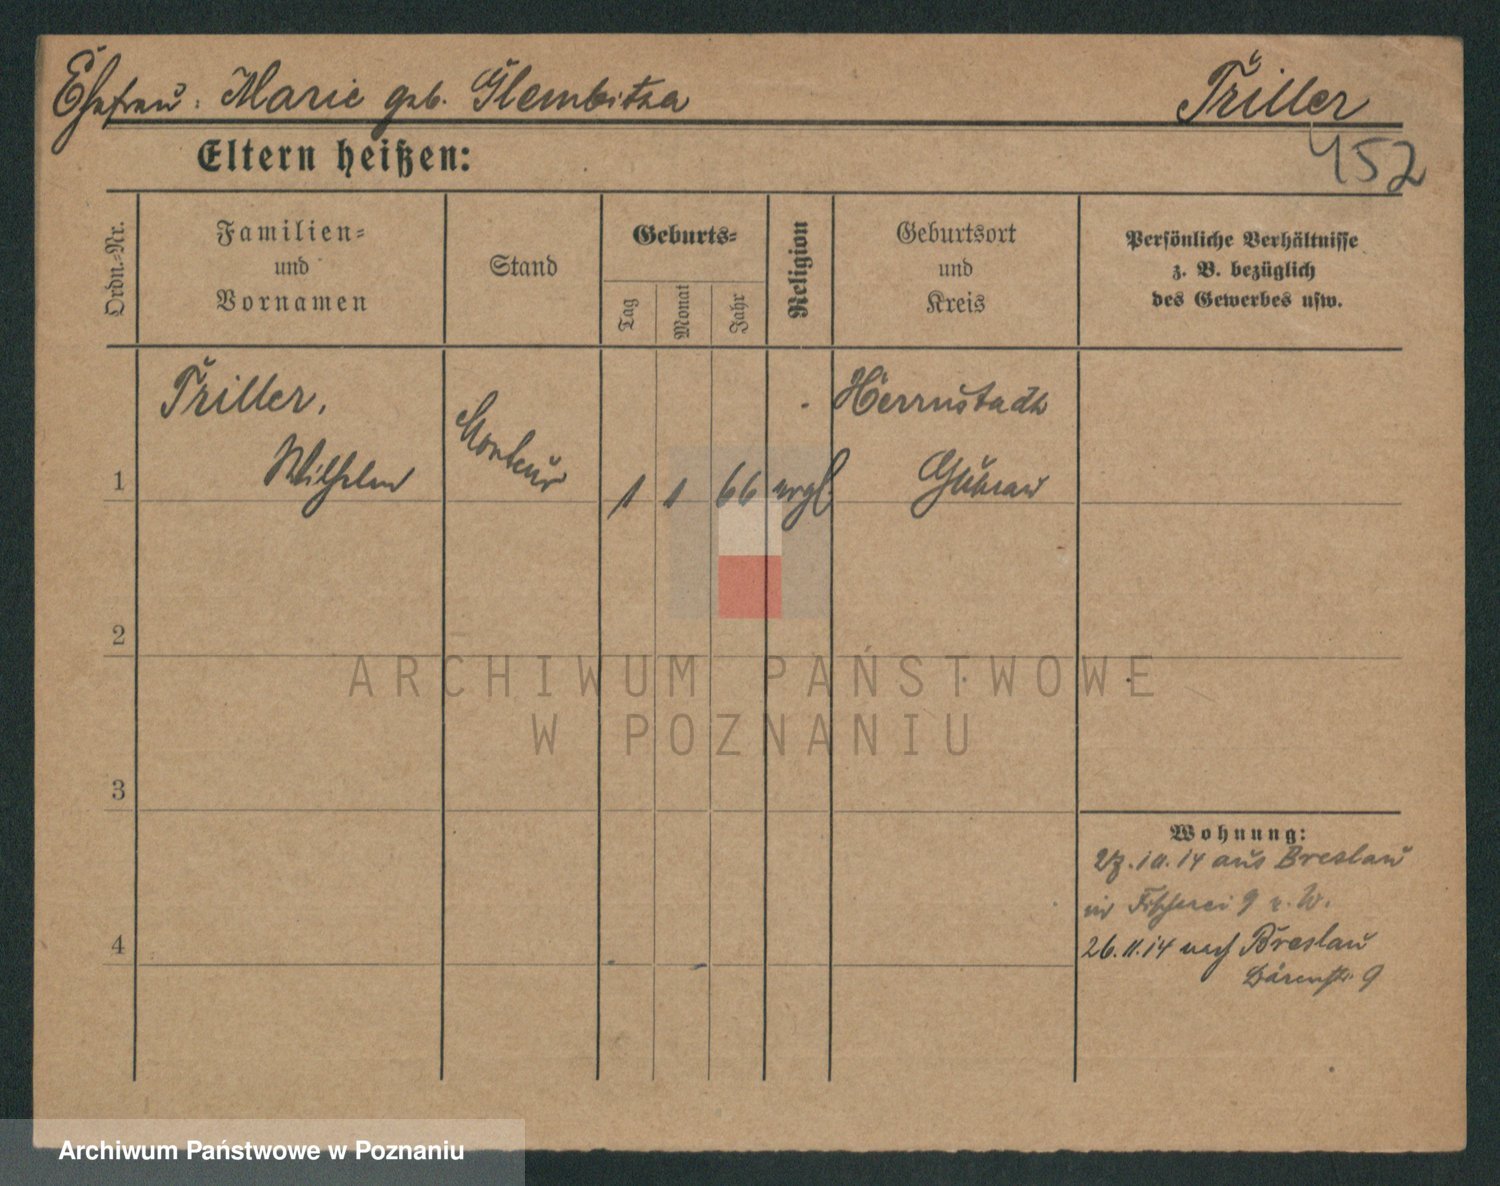 Ehefrau: Marie geb. Glembitza
Triller
452
Eltern heißen:
Ordn.-Nr.
Familien-
und
Vornamen
Stand
Geburts-
Tag
Monat
Jahr
Religion
Geburtsort
und
Kreis
Persönliche Verhältnisse
z. B. bezüglich
des Gewerbes usw.
1
Triller,
Wilhelm
Monteur
1 1 66 evgl.
Herrnstadt
Guhrau
2
3
4
ARCHIWUM PAŃSTWOWE
W POZNANIU
Wohnung:
10.14 aus Breslau
Fischerei 9
26.11.14 nach Breslau
Bärenstr. 9
Archiwum Państwowe w Poznaniu